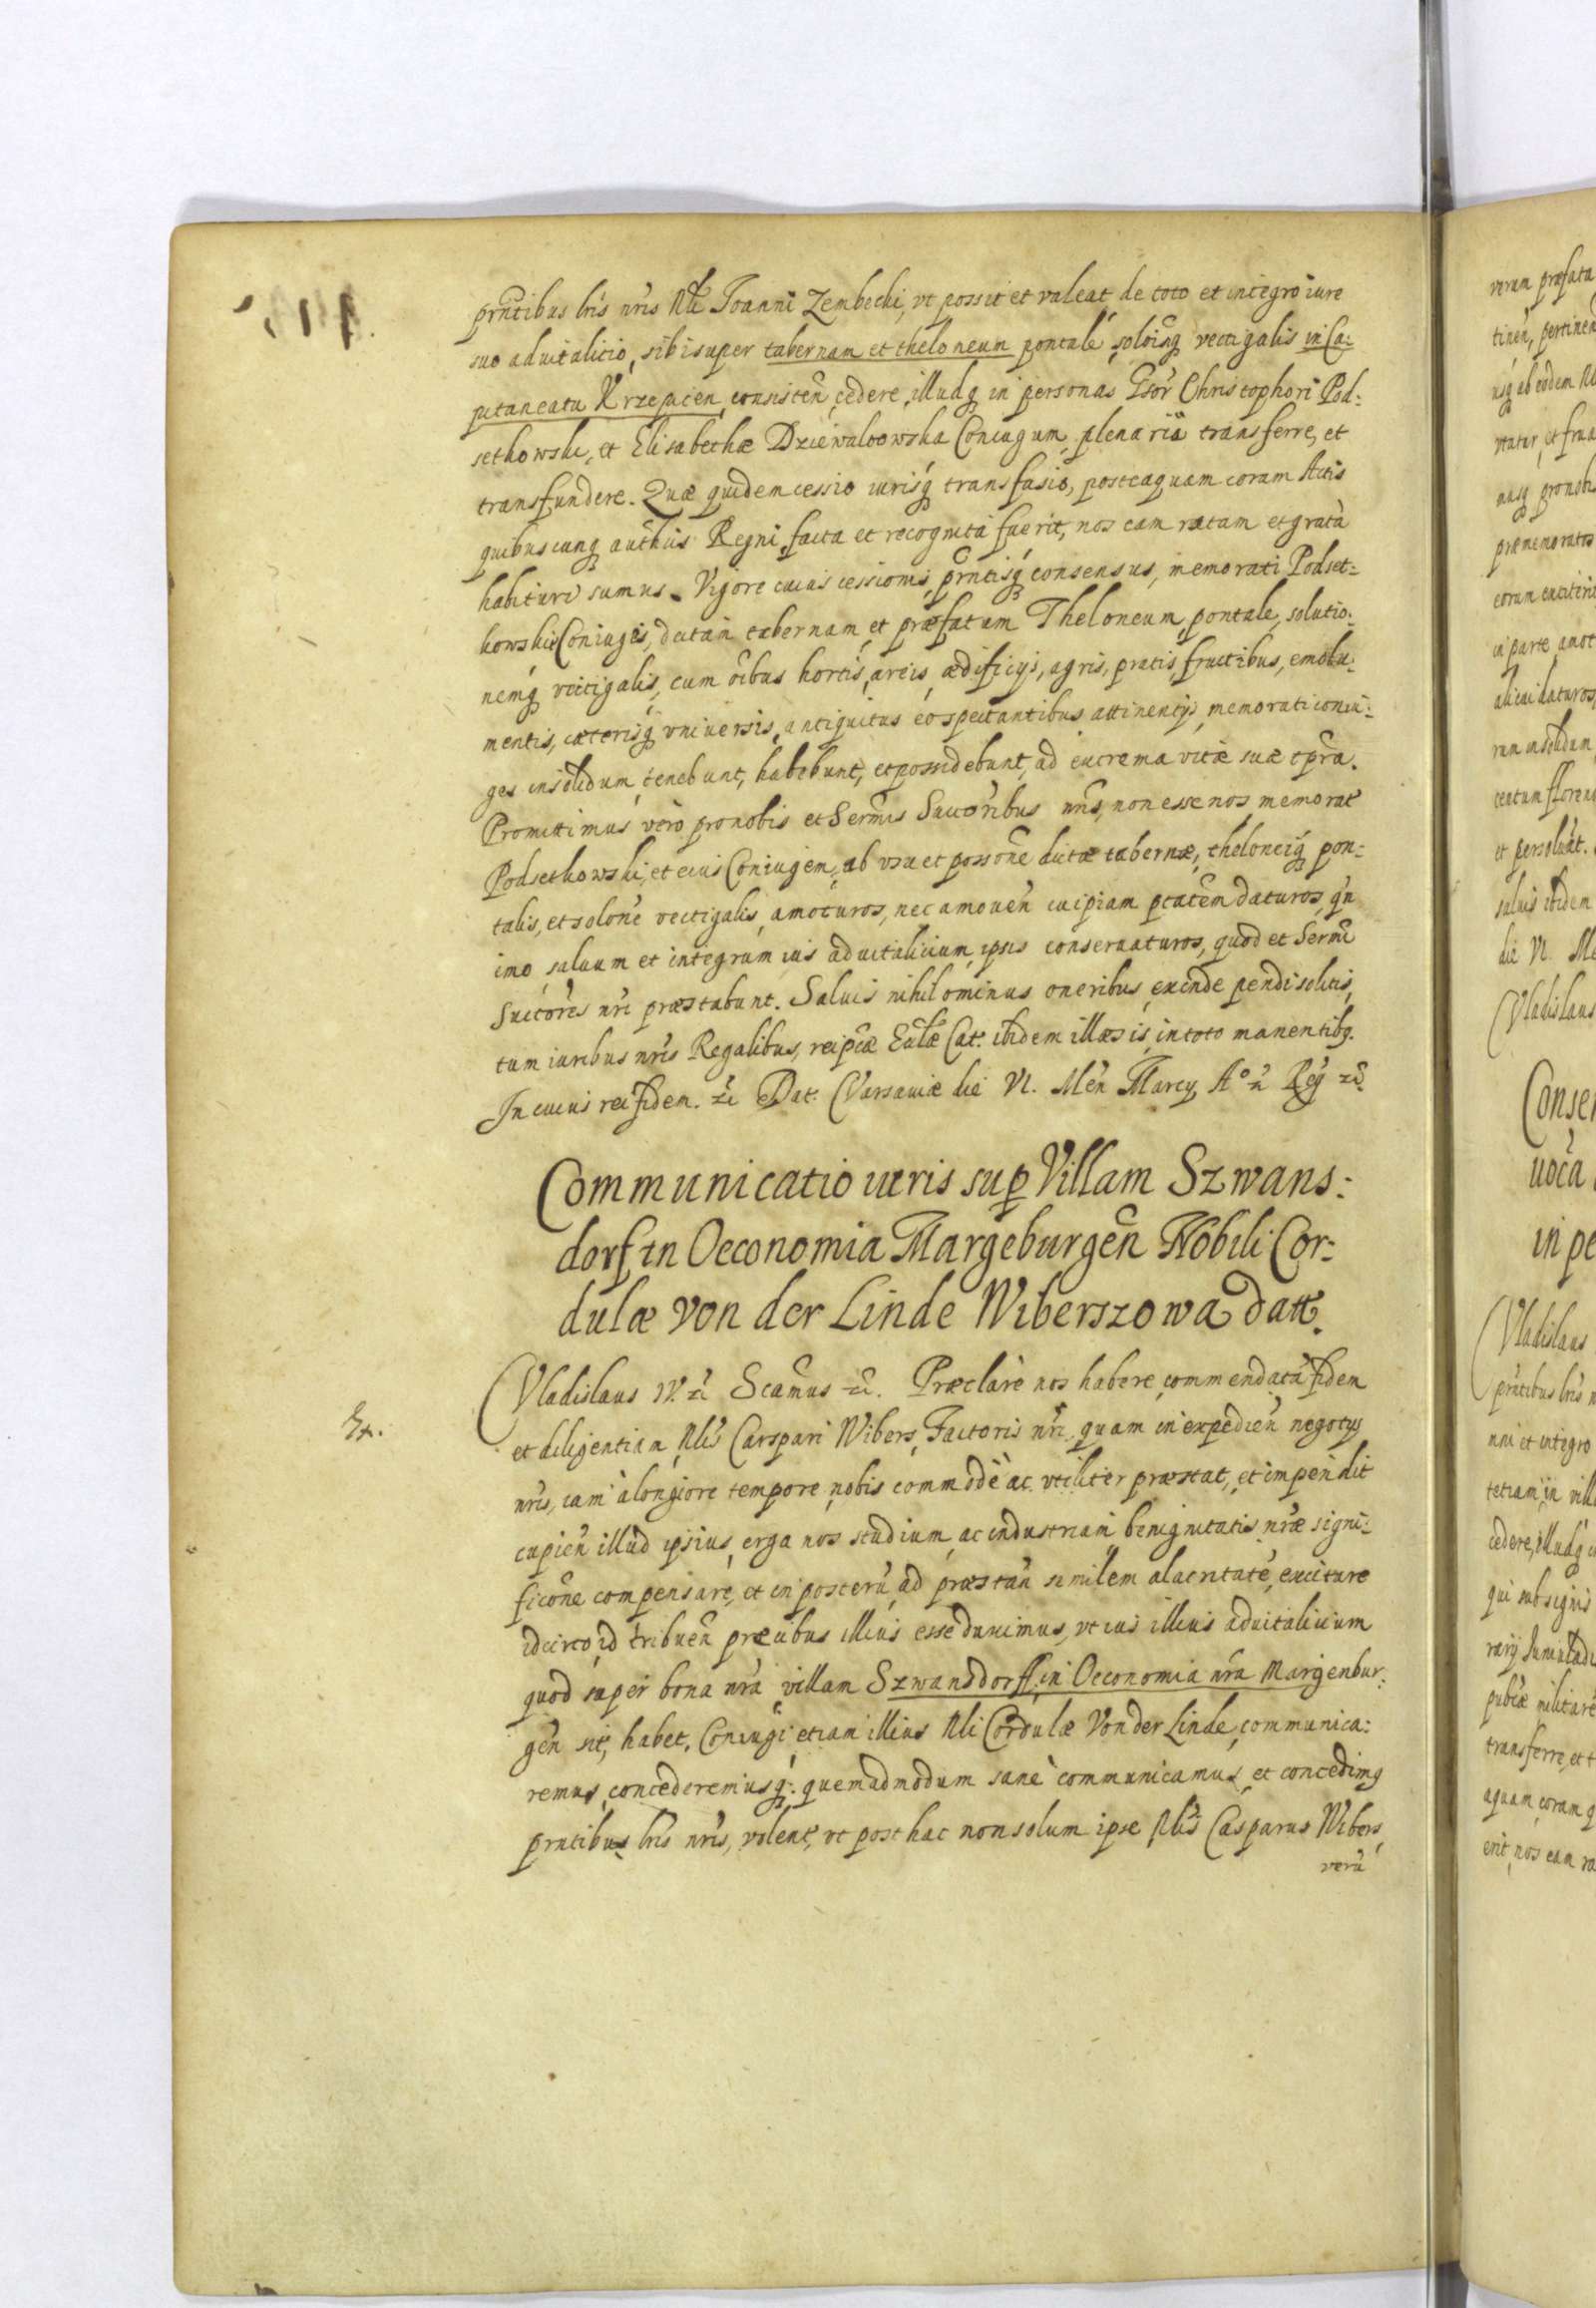 prñtibus lris nris Nli Joanni Zembecki, vt possit et valeat de toto et integro iure
suo aduitalitio, sibi super tabernam et theloneum pontale, soloisq vectigalis in Ca:
pitaneatu Krzepicen consisteñ cedere, illudq in personas Gsor Christophori Pod:
setkowski, et Elisabethæ Dziewaltowska Coniugum plenariè transferre, et
transfundere. Quæ quidem cessio iurisq transfusio, posteaquam coram Actis
quibuscunq authcis Regni facta et recognita fuerit, nos eam ratam et gratã
habituri sumus. Vigore cuius cessionis, prñtisq consensus, memorati Podset:
kowskie Coniuges, dictam tabernam et præfatum Theloneum pontale, solutio:
nemq vectigalis, cum oibus hortis, areis, ædificijs, agris, pratis, fructibus, emolu:
mentis, cæterisq vniuersis, antiquitus eo spectantibus attinentijs, memorati coniu:
ges in solidum tenebunt, habebunt, et possidebunt, ad extrema vitæ suæ tpra.
Promittimus verò pro nobis et Sermis Succoribus nris, non esse nos memorat
Podsetkowski, et eius Coniugem, ab vsu et possone dictæ tabernæ, theloneiq pon:
talis, et solone vectigalis, amoturos, nec amoueñ cuipiam ptatem daturos, qñ
imo saluum et integrum ius aduitalitium ipsis conseruaturos, quod et Sermi
Succores nri præstabunt. Saluis nihilominus oneribus, exinde pendi solitis,
tum iuribus nris Regalibus, reipcæ Eccliæ Cat. ibidem illæsis, in toto manentibq.
In cuius rei fidem. etc Dat. Varsauiæ die VI. Meñ Marcij, Aº etc Reg etc.
Communicatio iuris sup Villam Szwans:
dorf in Oeconomia Margeburgeñ Nobili Cor:
dulæ von der Linde Wiberszowa datt.
Vladislaus IV. etc Scamus etc. Præclarè nos habere commendatã fidem
et diligentiam Nlis Carspari Wibers, Factoris nri, quam in expedieñ negotijs
nris, iam à longiore tempore nobis commodè ac vtiliter præstat, et impendit
cupieñ illud ipsius erga nos studium ac industriam benignitatis nræ signi:
ficone compensare, et in posterũ ad præstañ similem alacritatẽ, excitare
idcirco id tribueñ precibus illius esse duximus, vt ius illius aduitalitium
quod super bona nra villam Szwansdorff in Oeconomia nra Margenbur:
geñ sit, habet, Coniugi etiam illius Nli Cordulæ Von der Linde, communica:
remus, concederemusq: quemadmodum sanè communicamus, et concedimq
prntibus lris nris, volent, vt post hac non solum ipse Nlis Casparus Wibers
verũ